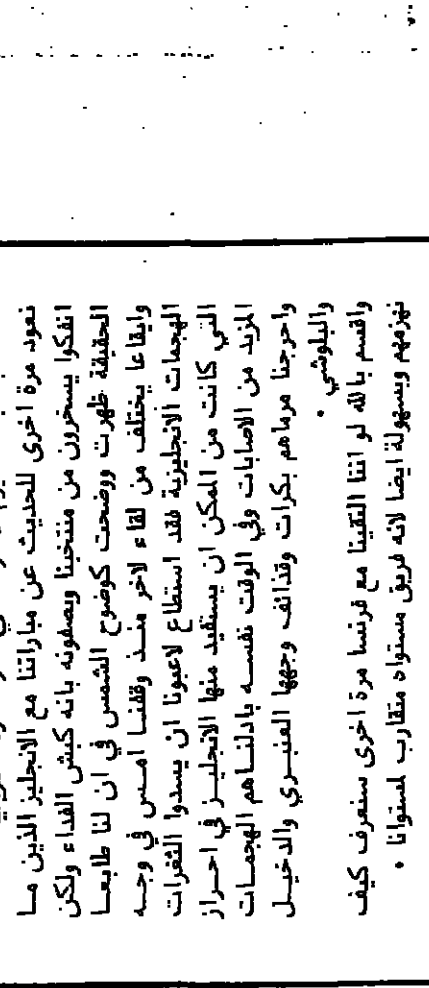 نعود مرة اخرى للحديث عن مباراتنا مع الانجليز الذين ما
انفكوا يسخرون من منتخبنا ويصفونه بانه كبش الفداء ولكن
الحقيقة ظهرت ووضحت كوضوح الشمس في ان لنا طابعا
وايقاعا يختلف من لقاء لاخر منذ وقفنا امس في وجه
الهجمات الانجليزية فقد استطاع لاعبونا ان يسدوا الثغرات
التي كانت من الممكن ان يستفيد منها الانجليز في احراز
المزيد من الاصابات وفي الوقت نفسه بادلناهم الهجمات
واحرجنا مرماهم بكرات وقذائف وجهها العنبري والدخيل
والبلوشي .
واقسم بالله لو اننا التقينا مع فرنسا مرة اخرى سنعرف كيف
نهزمهم وبسهولة ايضا لانه فريق مستواه متقارب لمستوانا .